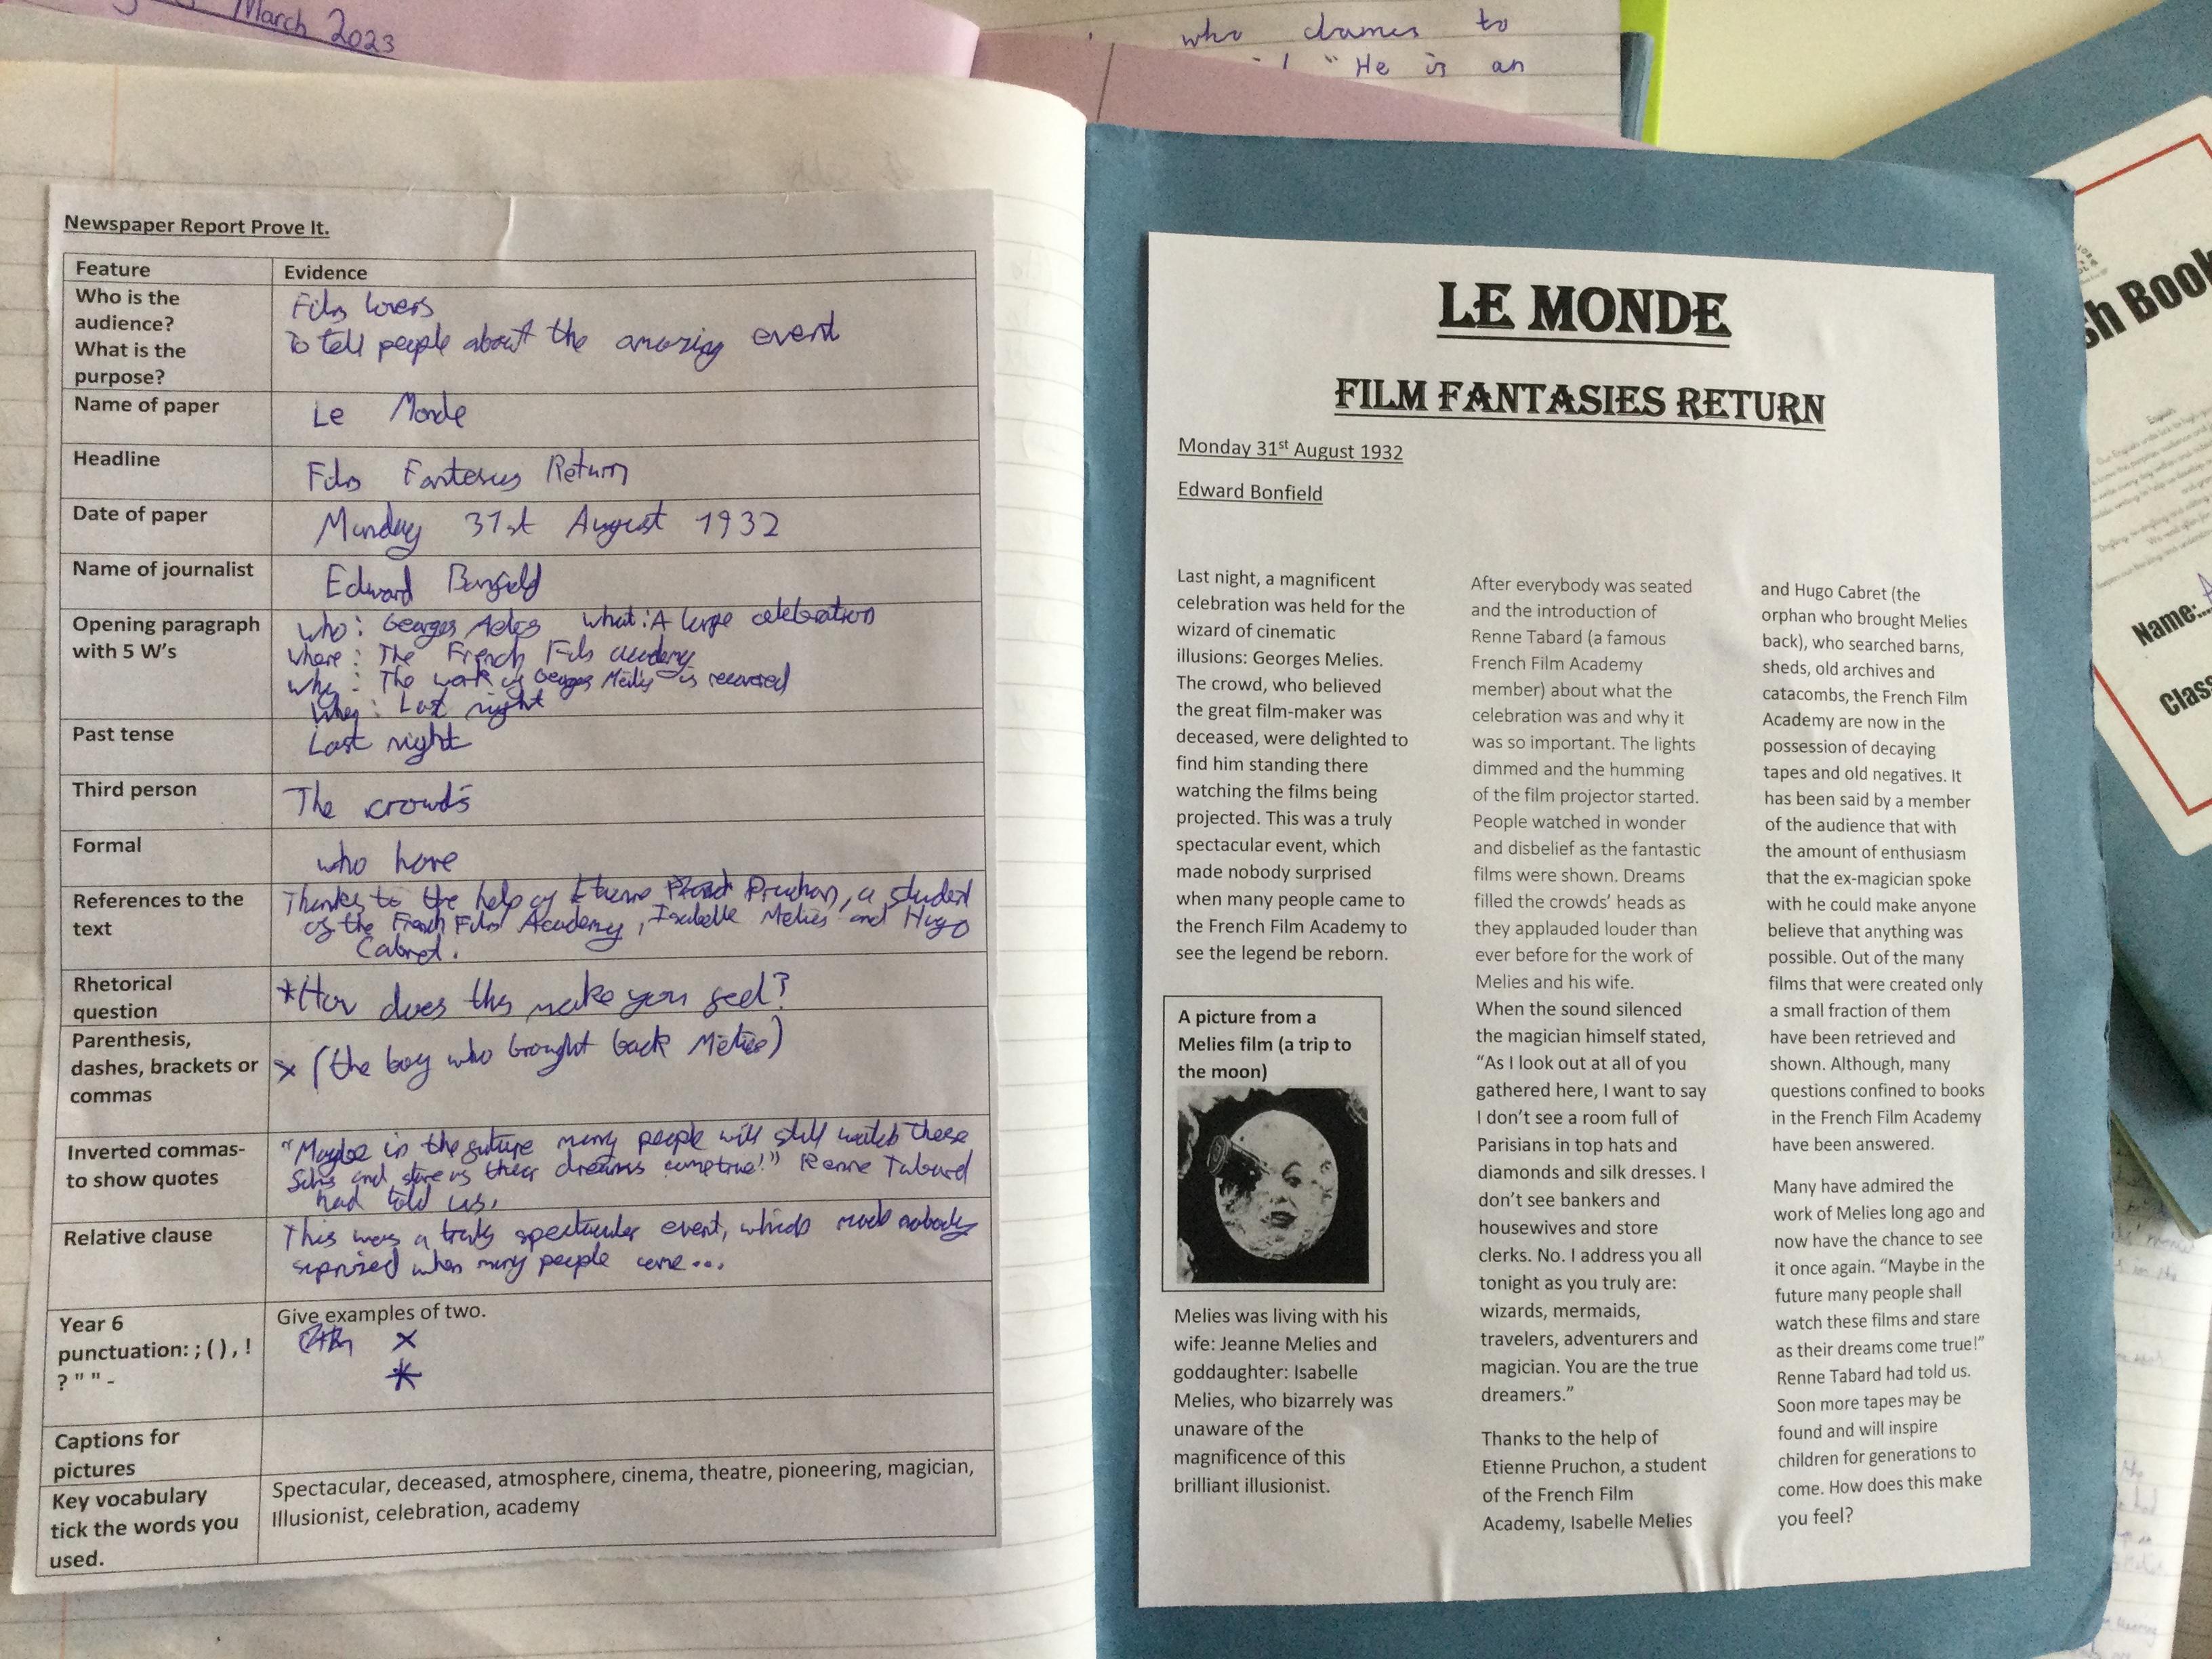 March 2023
who dames to
" He is an
Newspaper Report Prove It.
Feature
Evidence
Who is the
audience?
What is the
purpose?
Film lovers
To tell people about the amazing event
Name of paper
Le Monde
Headline
Film Fantesies Return
Date of paper
Munday 31st August 1932
Name of journalist
Edward Bonfield
Opening paragraph
with 5 W's
who: Georges Melies what: A large celebration
where: The French Film academy
why: The work of Georges Melies is recovered
When: Last night
Past tense
Last night
Third person
The crowd's
Formal
who have
References to the
text
Thanks to the help of Etienne Pruchon, a student
of the French Film Academy, Isabelle Melies and Hugo
Cabret.
Rhetorical
question
*How does this make you feel?
Parenthesis,
dashes, brackets or
commas
x (the boy who brought back Melies)
Inverted commas-
to show quotes
"Maybe in the future many people will still watch these
films and stare as their dreams come true!" Renne Tabard
had told us.
Relative clause
This was a truly spectacular event, which made nobody
suprised when many people came...
Year 6
punctuation: ; ( ) , !
? " " -
Give examples of two.
x
*
Captions for
pictures
Key vocabulary
tick the words you
used.
Spectacular, deceased, atmosphere, cinema, theatre, pioneering, magician,
Illusionist, celebration, academy
LE MONDE
FILM FANTASIES RETURN
Monday 31st August 1932
Edward Bonfield
Last night, a magnificent
celebration was held for the
wizard of cinematic
illusions: Georges Melies.
The crowd, who believed
the great film-maker was
deceased, were delighted to
find him standing there
watching the films being
projected. This was a truly
spectacular event, which
made nobody surprised
when many people came to
the French Film Academy to
see the legend be reborn.
A picture from a
Melies film (a trip to
the moon)
Melies was living with his
wife: Jeanne Melies and
goddaughter: Isabelle
Melies, who bizarrely was
unaware of the
magnificence of this
brilliant illusionist.
After everybody was seated
and the introduction of
Renne Tabard (a famous
French Film Academy
member) about what the
celebration was and why it
was so important. The lights
dimmed and the humming
of the film projector started.
People watched in wonder
and disbelief as the fantastic
films were shown. Dreams
filled the crowds' heads as
they applauded louder than
ever before for the work of
Melies and his wife.
When the sound silenced
the magician himself stated,
"As I look out at all of you
gathered here, I want to say
I don't see a room full of
Parisians in top hats and
diamonds and silk dresses. I
don't see bankers and
housewives and store
clerks. No. I address you all
tonight as you truly are:
wizards, mermaids,
travelers, adventurers and
magician. You are the true
dreamers."
Thanks to the help of
Etienne Pruchon, a student
of the French Film
Academy, Isabelle Melies
and Hugo Cabret (the
orphan who brought Melies
back), who searched barns,
sheds, old archives and
catacombs, the French Film
Academy are now in the
possession of decaying
tapes and old negatives. It
has been said by a member
of the audience that with
the amount of enthusiasm
that the ex-magician spoke
with he could make anyone
believe that anything was
possible. Out of the many
films that were created only
a small fraction of them
have been retrieved and
shown. Although, many
questions confined to books
in the French Film Academy
have been answered.
Many have admired the
work of Melies long ago and
now have the chance to see
it once again. "Maybe in the
future many people shall
watch these films and stare
as their dreams come true!"
Renne Tabard had told us.
Soon more tapes may be
found and will inspire
children for generations to
come. How does this make
you feel?
sh Book
English
Name:
Class